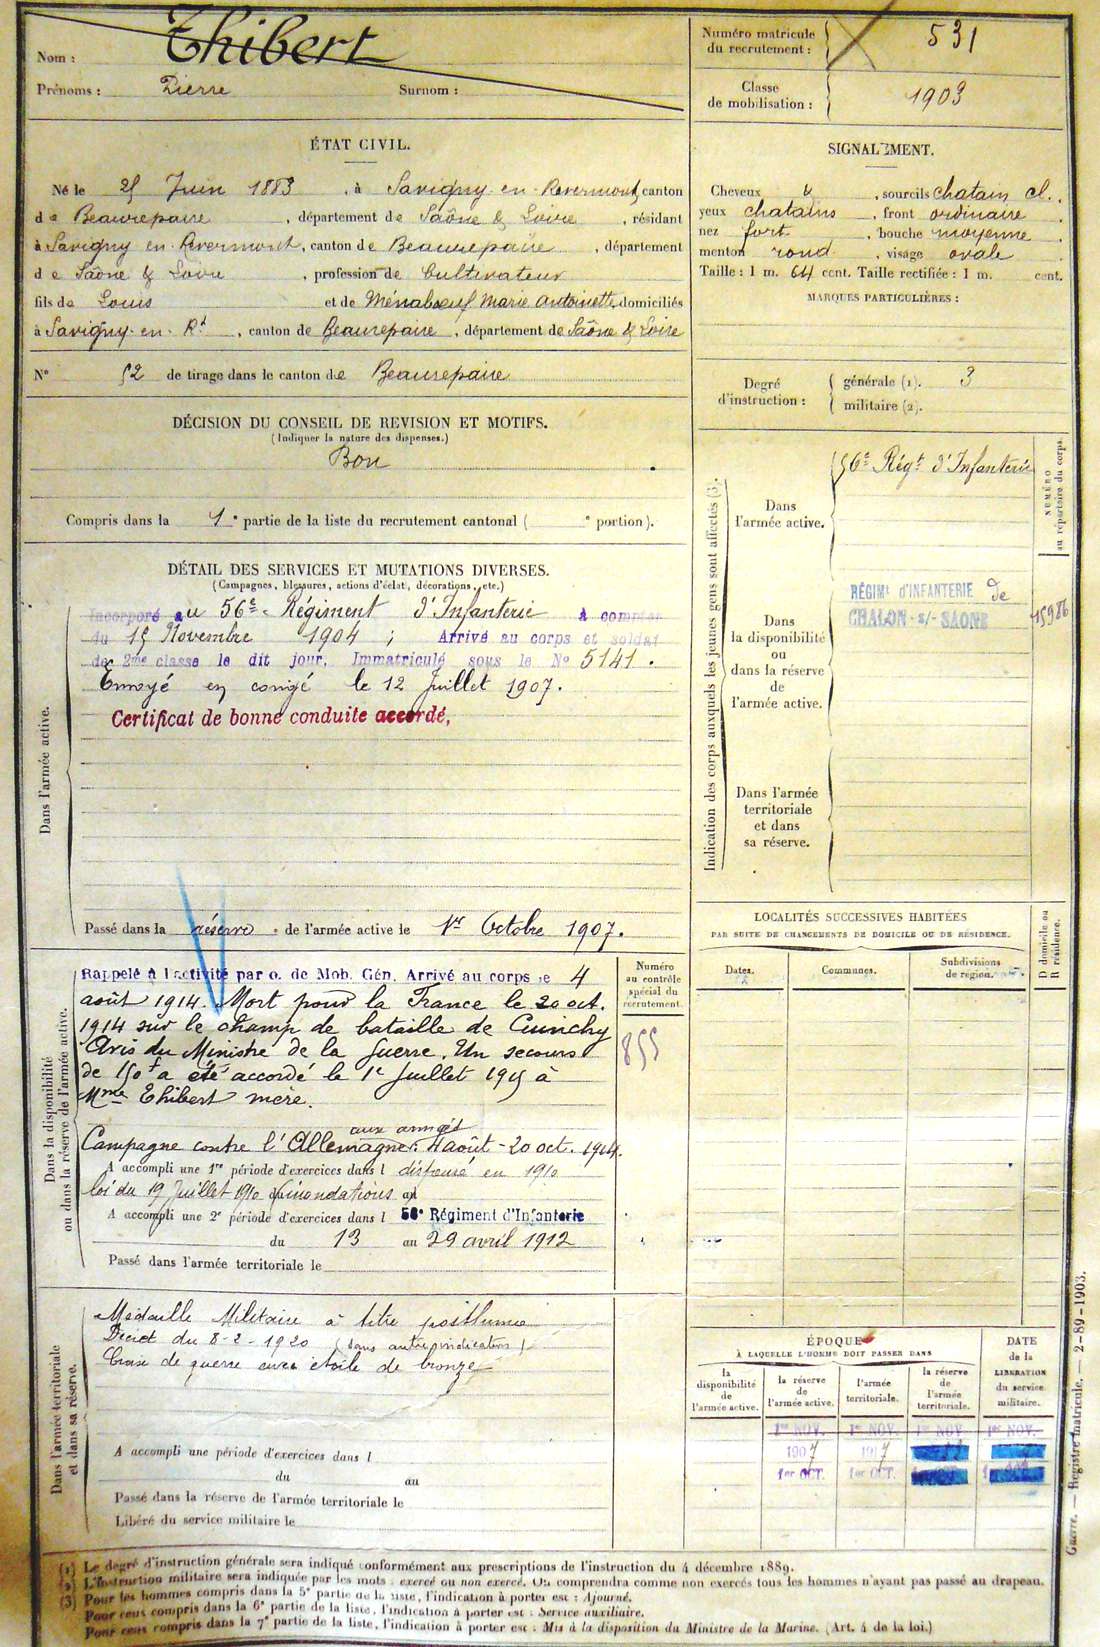 Nom : Thibert
Prénoms : Pierre Surnom :
Numéro matricule du recrutement : 531
Classe de mobilisation : 1903
ÉTAT CIVIL.
Né le 25 Juin 1883, à Savigny-en-Revermont, canton
de Beaurepaire, département de Saône & Loire, résidant
à Savigny en Revermont, canton de Beaurepaire, département
de Saône & Loire, profession de Cultivateur
fils de Louis et de Ménabœuf Marie Antoinette, domiciliés
à Savigny-en-Rt, canton de Beaurepaire, département de Saône & Loire
N° 52 de tirage dans le canton de Beaurepaire
SIGNALEMENT.
Cheveux, sourcils chatain cl.
yeux chatains, front ordinaire
nez fort, bouche moyenne
menton rond, visage ovale
Taille : 1 m. 64 cent. Taille rectifiée : 1 m. cent.
MARQUES PARTICULIÈRES :
Degré d'instruction : générale (1). 3
militaire (2).
DÉCISION DU CONSEIL DE REVISION ET MOTIFS.
(Indiquer la nature des dispenses.)
Bon
Compris dans la 1e partie de la liste du recrutement cantonal ( e portion).
DÉTAIL DES SERVICES ET MUTATIONS DIVERSES.
(Campagnes, blessures, actions d'éclat, décorations, etc.)
Dans l'armée active.
Incorporé au 56e Régiment d'Infanterie à compter
du 15 Novembre 1904 ; Arrivé au corps et soldat
de 2me classe le dit jour, Immatriculé sous le N° 5141.
Envoyé en congé le 12 Juillet 1907.
Certificat de bonne conduite accordé,
Passé dans la réserve de l'armée active le 1er Octobre 1907.
Indication des corps auxquels les jeunes gens sont affectés (3).
NUMÉRO au répertoire du corps.
Dans l'armée active.
56e Régt d'Infanterie
Dans la disponibilité ou dans la réserve de l'armée active.
RÉGIMt D'INFANTERIE de
CHALON-s/-SAONE
15986
Dans l'armée territoriale et dans sa réserve.
Dans la disponibilité ou dans la réserve de l'armée active.
Rappelé à l'activité par o. de Mob. Gén. Arrivé au corps le 4
août 1914. Mort pour la France le 20 oct.
1914 sur le champ de bataille de Cuinchy
Avis du Ministre de la Guerre. Un secours
de 150f a été accordé le 1e Juillet 1915 à
Mme Thibert mère.
aux armées
Campagne contre l'Allemagne : 4 août - 20 oct. 1914.
A accompli une 1re période d'exercices dans l dispensé en 1910
loi du 19 Juillet 1910 (inondations) au
A accompli une 2e période d'exercices dans l 56e Régiment d'Infanterie
du 13 au 29 avril 1912
Passé dans l'armée territoriale le
Numéro au contrôle spécial du recrutement.
855
LOCALITÉS SUCCESSIVES HABITÉES
PAR SUITE DE CHANGEMENTS DE DOMICILE OU DE RÉSIDENCE.
Dates. Communes. Subdivisions de région. D domicile ou R résidence.
Dans l'armée territoriale et dans sa réserve.
Médaille Militaire à titre posthume
Décret du 8-2-1920 (sans autre indication)
Croix de guerre avec étoile de bronze
A accompli une période d'exercices dans l
du au
Passé dans la réserve de l'armée territoriale le
Libéré du service militaire le
ÉPOQUE
À LAQUELLE L'HOMME DOIT PASSER DANS
la disponibilité de l'armée active.
la réserve de l'armée active.
l'armée territoriale.
la réserve de l'armée territoriale.
DATE de la LIBÉRATION du service militaire.
1er NOV. 1er NOV. 1er NOV 1er NOV.
1907 1917
1er OCT. 1er OCT.
Guerre. — Registre matricule. — 2-89-1903.
(1) Le degré d'instruction générale sera indiqué conformément aux prescriptions de l'instruction du 4 décembre 1889.
(2) L'instruction militaire sera indiquée par les mots : exercé ou non exercé. On comprendra comme non exercés tous les hommes n'ayant pas passé au drapeau.
(3) Pour les hommes compris dans la 5e partie de la liste, l'indication à porter est : Ajourné.
Pour ceux compris dans la 6e partie de la liste, l'indication à porter est : Service auxiliaire.
Pour ceux compris dans la 7e partie de la liste, l'indication à porter est : Mis à la disposition du Ministre de la Marine. (Art. 4 de la loi.)